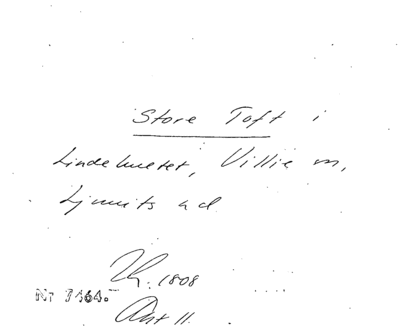 Store Toft i
Lindehvetet, Villie sn,
Ljunits hd
Th. 1808
Nr 3464.
Ant 11.